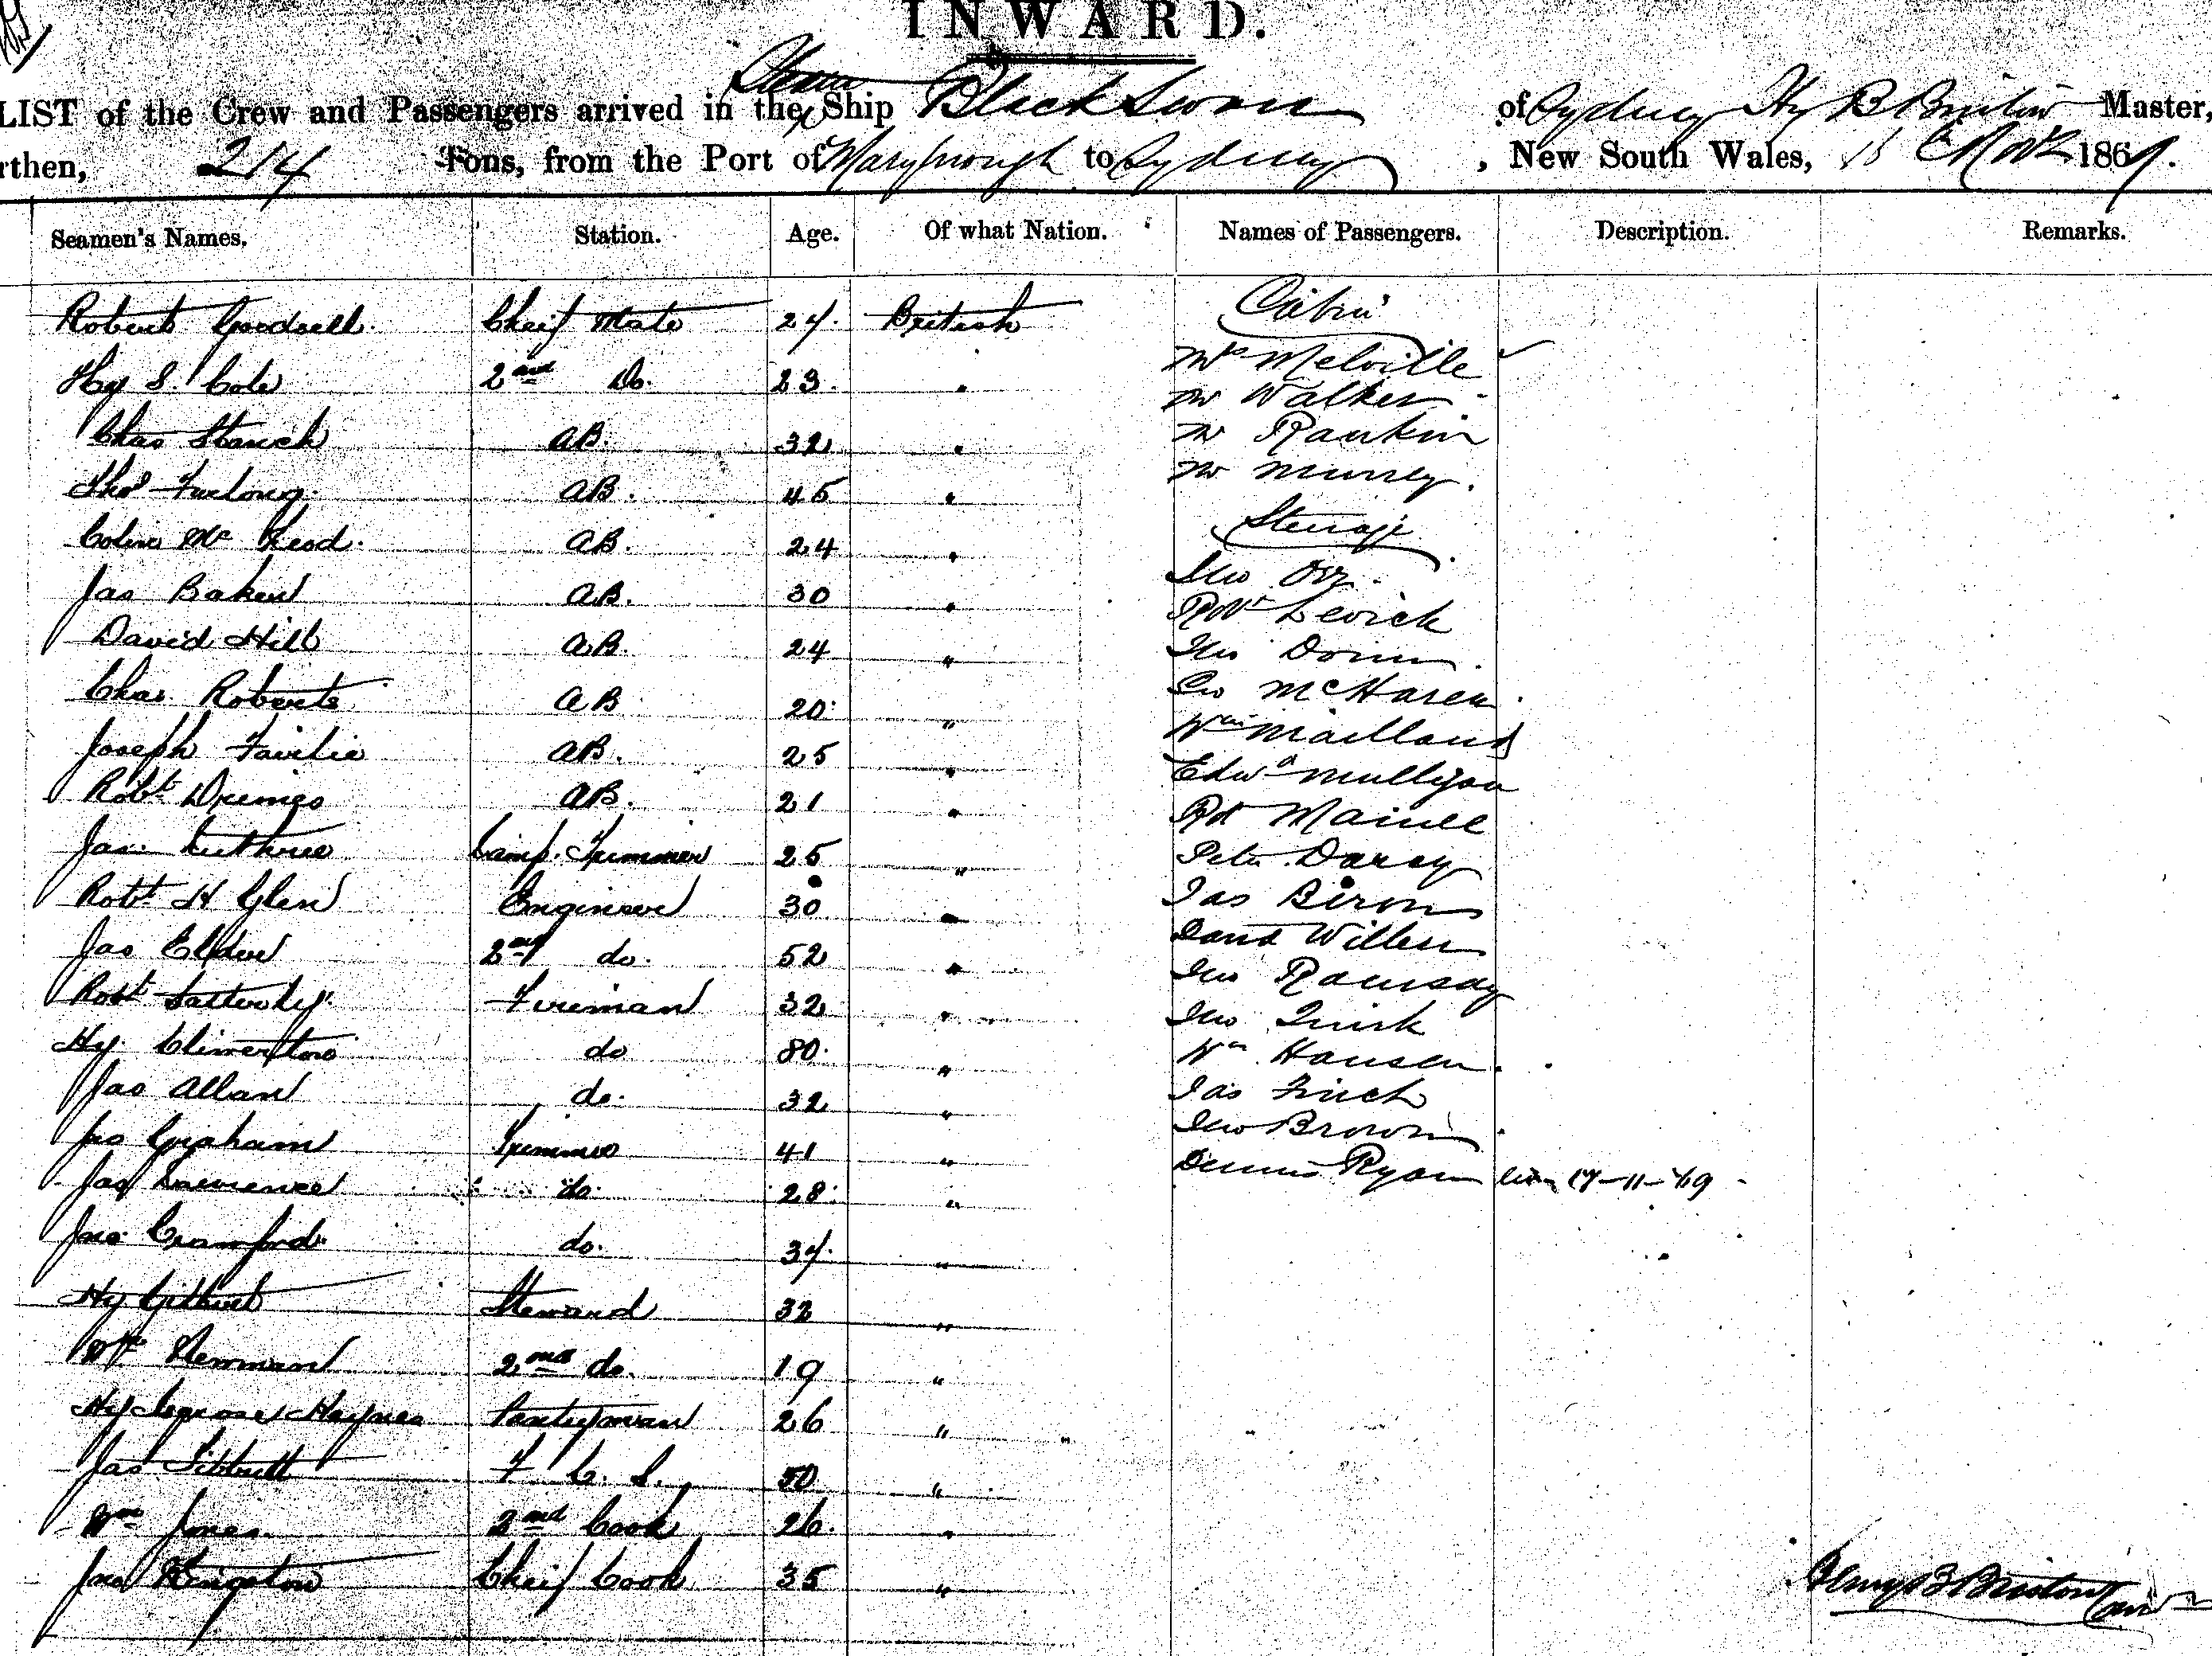 INWARD.
LIST of the Crew and Passengers arrived in the Steam Ship Black Swan of Sydney Hy B Bristow Master,
rthen, 214 Tons, from the Port of Maryborough to Sydney, New South Wales, 15 Novr 1869.
Seamen's Names. Station. Age. Of what Nation. Names of Passengers. Description. Remarks.
Robert Goodsell Cheif Mate 27 British
Hy S. Cole 2nd Do. 23 "
Chas Stanch AB. 32 "
Thos Furlong AB. 45 "
Colin Mc Leod AB. 24 "
Jas Baker AB. 30 "
David Hill AB. 24 "
Chas Roberts AB 20 "
Joseph Fairlie AB. 25 "
Robt AB. 21 "
Jas. Guthrie Lamp. Trimmer 25 "
Robt H Glen Engineer 30 "
Jas Elder 2nd do. 52 "
Robt Satterley Fireman 32 "
Hy do 30 "
Jas Allan do. 32 "
Jas Graham Trimmer 41 "
Jas Lawrence do. 28 "
Jno Crawford do. 37 "
Hy Gilbert Steward 32 "
Wm Newman 2nd do. 19 "
Hy Haynes Pantryman 26 "
Jas Tibbutt F. C. S. 50 "
Wm Jones 2nd Cook 26 "
Jno Kingston Cheif Cook 35 "
Cabin
Mrs Melville
Mr Walker
Mr Rankin
Mr Murrey
Steerage
Jno Orz
Robt Levick
Jno
Geo McHaren
Wm Maitland
Edwd Mulligan
Rbt
Peter Darcy
Jas Birom
David
Jno Ramsay
Jno Quirk
Wm Hansen
Jas Finch
Jno Brown
Dennis Ryan 17-11-69
Henry B Bristow